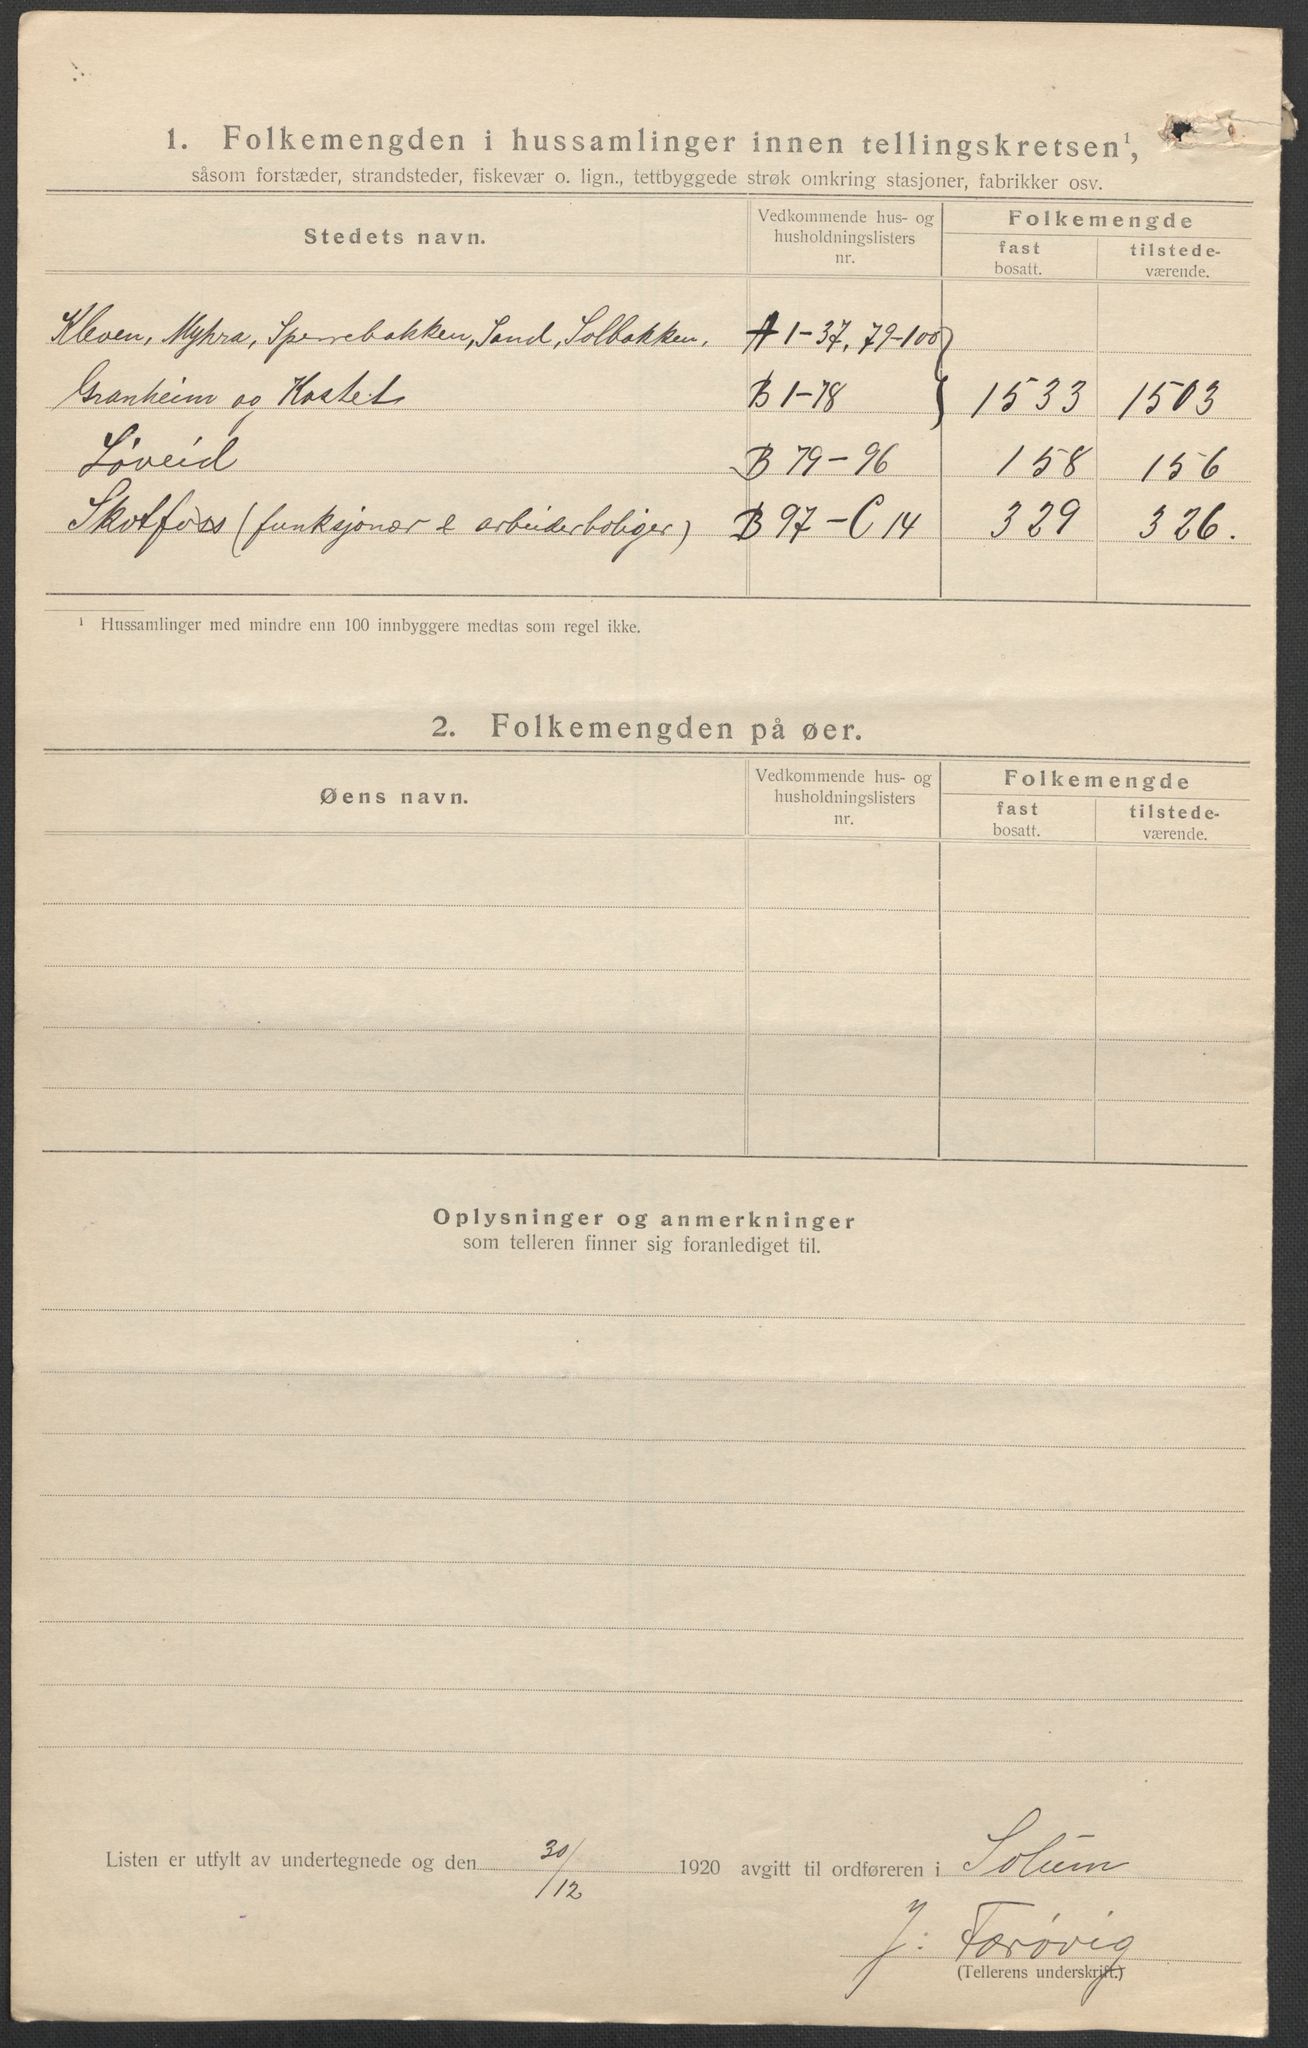 1. Folkemengden i hussamlinger innen tellingskretsen¹,
såsom forstæder, strandsteder, fiskevær o. lign., tettbyggede strøk omkring stasjoner, fabrikker osv.
Stedets navn.
Vedkommende hus- og husholdningslisters nr.
Folkemengde
fast bosatt.
tilstede-værende.
Kleven, Myhra, Sperrebakken, Sand, Solbakken, A 1-37, 79-100
Granheim og Kastet B 1-78 1533 1503
Løveid B 79-96 158 156
Skotfoss (funksjonær & arbeiderboliger) B 97-C 14 329 326.
¹ Hussamlinger med mindre enn 100 innbyggere medtas som regel ikke.
2. Folkemengden på øer.
Øens navn.
Vedkommende hus- og husholdningslisters nr.
Folkemengde
fast bosatt.
tilstede-værende.
Oplysninger og anmerkninger
som telleren finner sig foranlediget til.
Listen er utfylt av undertegnede og den 30/12 1920 avgitt til ordføreren i Solum
J. Færøvig
(Tellerens underskrift.)